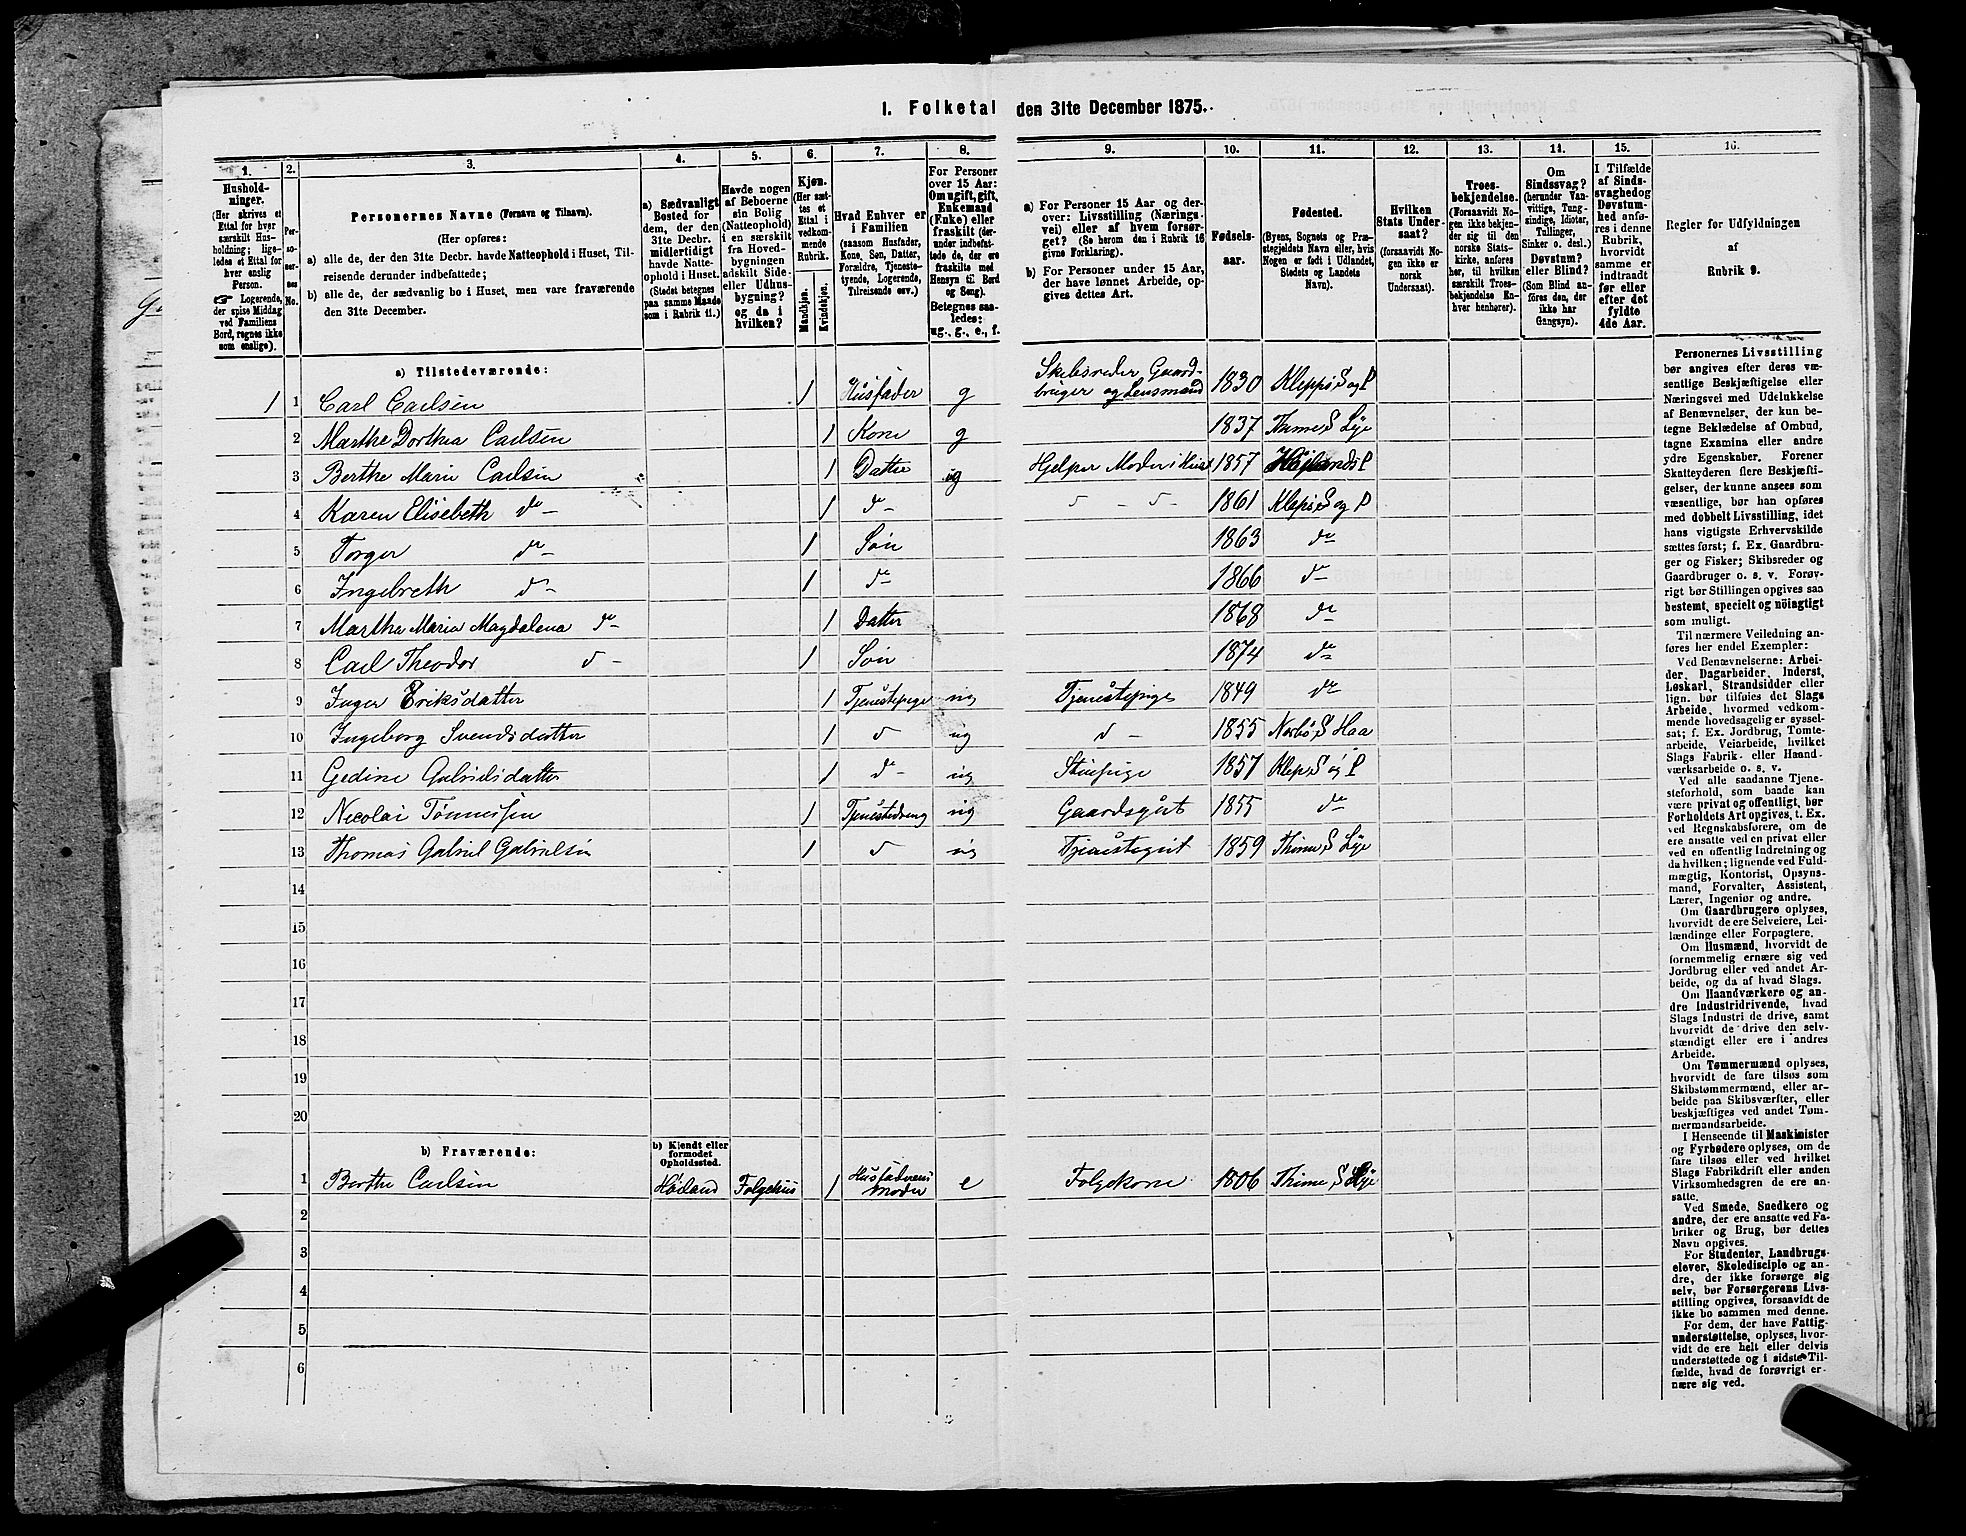 1. Folketal den 31te December 1875.
1.
2.
3.
4.
5.
6.
7.
8.
9.
10.
11.
12.
13.
14.
15.
16.
Hushold-
ninger.
(Her skrives et
Ettal for hver
særskilt Hus-
holdning; lige-
ledes et Ettal for
hver enslig
Person.
☞ Logerende,
der spise Middag
ved Familiens
Bord, regnes ikke
som enslige).
Personernes Navne (Fornavn og Tilnavn).
(Her opføres:
a) alle de, der den 31te Decbr. havde Natteophold i Huset, Til-
reisende derunder indbefattede;
b) alle de, der sædvanlig bo i Huset, men vare fraværende
den 31te December.
a) Sædvanligt
Bosted for
dem, der den
31te Decbr.
midlertidigt
havde Natte-
ophold i Huset.
(Stedet betegnes
paa samme Maade
som i Rubrik 11.)
Havde nogen
af Beboerne
sin Bolig
(Natteophold)
i en særskilt
fra Hoved-
bygningen
adskilt Side-
eller Udhus-
bygning?
og da i
hvilken?
Kjøn.
(Her sæt-
tes et
Ettal i
vedkom-
mende
Rubrik.
Mandkjøn.
Kvindekjøn.
Hvad Enhver er
i Familien
(saasom Husfader,
Kone, Søn, Datter,
Forældre, Tjeneste-
tyende, Logerende,
Tilreisende osv.)
For Personer
over 15 Aar:
Om ugift, gift,
Enkemand
(Enke) eller
fraskilt (der-
under indbefat-
tede de, der ere
fraskilte med
Hensyn til Bord
og Seng).
Betegnes saa-
ledes:
ug., g., e., f.
a) For Personer 15 Aar og der-
over: Livsstilling (Nærings-
vei) eller af hvem forsør-
get? (Se herom den i Rubrik 16
givne Forklaring).
b) For Personer under 15 Aar,
der have lønnet Arbeide, op-
gives dettes Art.
Fødsels-
aar.
Fødested.
(Byens, Sognets og Præ-
stegjeldets Navn eller, hvis
Nogen er født i Udlandet,
Stedets og Landets
Navn).
Hvilken
Stats Under-
saat?
(forsaavidt No-
gen ikke er
norsk
Undersaat).
Troes-
bekjendelse.
(Forsaavidt No-
gen ikke bekjen-
der sig til den
norske Stats-
kirke, anføres
her, til hvilken
særskilt Troes-
bekjendelse En-
hver henhører).
Om
Sindssvag?
(herunder Van-
vittige, Tung-
sindige, Idioter,
Tullinger,
Sinker o. desl.)
Døvstum?
eller Blind?
(Som Blind an-
føres den, der
ikke har
Gangsyn).
I Tilfælde
af Sinds-
svaghed og
Døvstum-
hed anfø-
res i denne
Rubrik,
hvorvidt
samme er
indtraadt
før eller
efter det
fyldte
4de Aar.
Regler for Udfyldningen
af
Rubrik 9.
a) Tilstedeværende:
1 1 Carl Carlsen 1 Husfader g Skibsreder Gaard-
bruger og Lensmand 1830 Klepp S og P
2 Marthe Dorthea Carlsen 1 Kone g 1837 Thime S Lye
3 Berthe Marie Carlsen 1 Datter ug Hjelper Moder i Huset 1857 Høilands P
4 Karen Elisebeth do 1 do 1861 Klep S og P
5 Torger do 1 Søn 1863 do
6 Ingebreth do 1 do 1866 do
7 Marthe Maria Magdalena do 1 Datter 1868 do
8 Carl Theodor do 1 Søn 1874 do
9 Inger Eriksdatter 1 Tjenestepige ug Tjenestepige 1849 do
10 Ingeborg Svendsdatter 1 do ug do 1855 Nærbø S Haa
11 Gedine Gabrielsdatter 1 do ug 1857 Klep S og P
12 Nicolai Tønnessen 1 Tjenestedreng ug Gaardsgut 1855 do
13 Thomas Gabriel Gabrielsen 1 do ug Tjenestegut 1859 Thime S Lye
14
15
16
17
18
19
20
b) Fraværende:
b) Kjendt eller
formodet
Opholdssted.
1 Berthe Carlsen Høiland Folgehus 1 Husfaderens
Moder e Folgekone 1806 Thime S Lye
2
3
4
5
6
Personernes Livsstilling
bør angives efter deres væ-
sentlige Beskjæftigelse eller
Næringsvei med Udelukkelse
af Benævnelser, der kun be-
tegne Beklædelse af Ombud,
tagne Examina eller andre
ydre Egenskaber. Forener
Skatteyderen flere Beskjæfti-
gelser, der kunne ansees som
væsentlige, bør han opføres
med dobbelt Livsstilling, idet
hans vigtigste Erhvervskilde
sættes først; f. Ex. Gaardbru-
ger og Fisker; Skibsreder og
Gaardbruger o. s. v. Forøv-
rigt bør Stillingen opgives saa
bestemt, specielt og nöiagtigt
som muligt.
Til nærmere Veiledning an-
føres her endel Exempler:
Ved Benævnelserne: Arbei-
der, Dagarbeider, Inderst,
Løskarl, Strandsidder eller
lign. bør tilføies det Slags
Arbeide, hvormed vedkom-
mende hovedsagelig er syssel-
sat; f. Ex. Jordbrug, Tomte-
arbeide, Veiarbeide, hvilket
Slags Fabrik- eller Haand-
værksarbeide o. s. v.
Ved alle saadanne Tjene-
steforhold, som baade kan
være privat og offentligt, bør
Forholdets Art opgives, t. Ex.
ved Regnskabsførere, om de
ere ansatte ved en privat eller
ved en offentlig Indretning og
da hvilken; lignende ved Fuld-
mægtig, Kontorist, Opsyns-
mand, Forvalter, Assistent,
Lærer, Ingeniør og andre.
Om Gaardbrugere oplyses,
hvorvidt de ere Selveiere, Lei-
lændinge eller Forpagtere.
Om Husmænd, hvorvidt de
fornemmelig ernære sig ved
Jordbrug eller ved andet Ar-
beide, og da af hvad Slags.
Om Haandværkere og an-
dre Industridrivende, hvad
Slags Industri de drive, samt
hvorvidt de drive den selv-
stændigt eller ere i andres
Arbeide.
Om Tømmermænd oplyses,
hvorvidt de fare tilsøs som
Skibstømmermænd, eller ar-
beide paa Skibsværfter, eller
beskjæftiges ved andet Tøm-
mermandsarbeide.
I Henseende til Maskinister
og Fyrbødere oplyses, om de
fare tilsøs eller ved hvilket
Slags Fabrikdrift eller anden
Virksomhedsgren de ere an-
satte.
Ved Smede, Snedkere og
andre, der ere ansatte ved Fa-
briker og Brug, bør dettes
Navn opgives.
For Studenter, Landbrugs-
elever, Skoledisciple og an-
dre, der ikke forsørge sig
selv, bør Forsørgerens Livs-
stilling opgives, forsaavidt de
ikke bo sammen med denne.
For dem, der have Fattig-
understøttelse, oplyses, hvor-
vidt de ere helt eller delvis
understøttede og i sidste Til-
fælde, hvad de forøvrigt er-
nære sig ved.